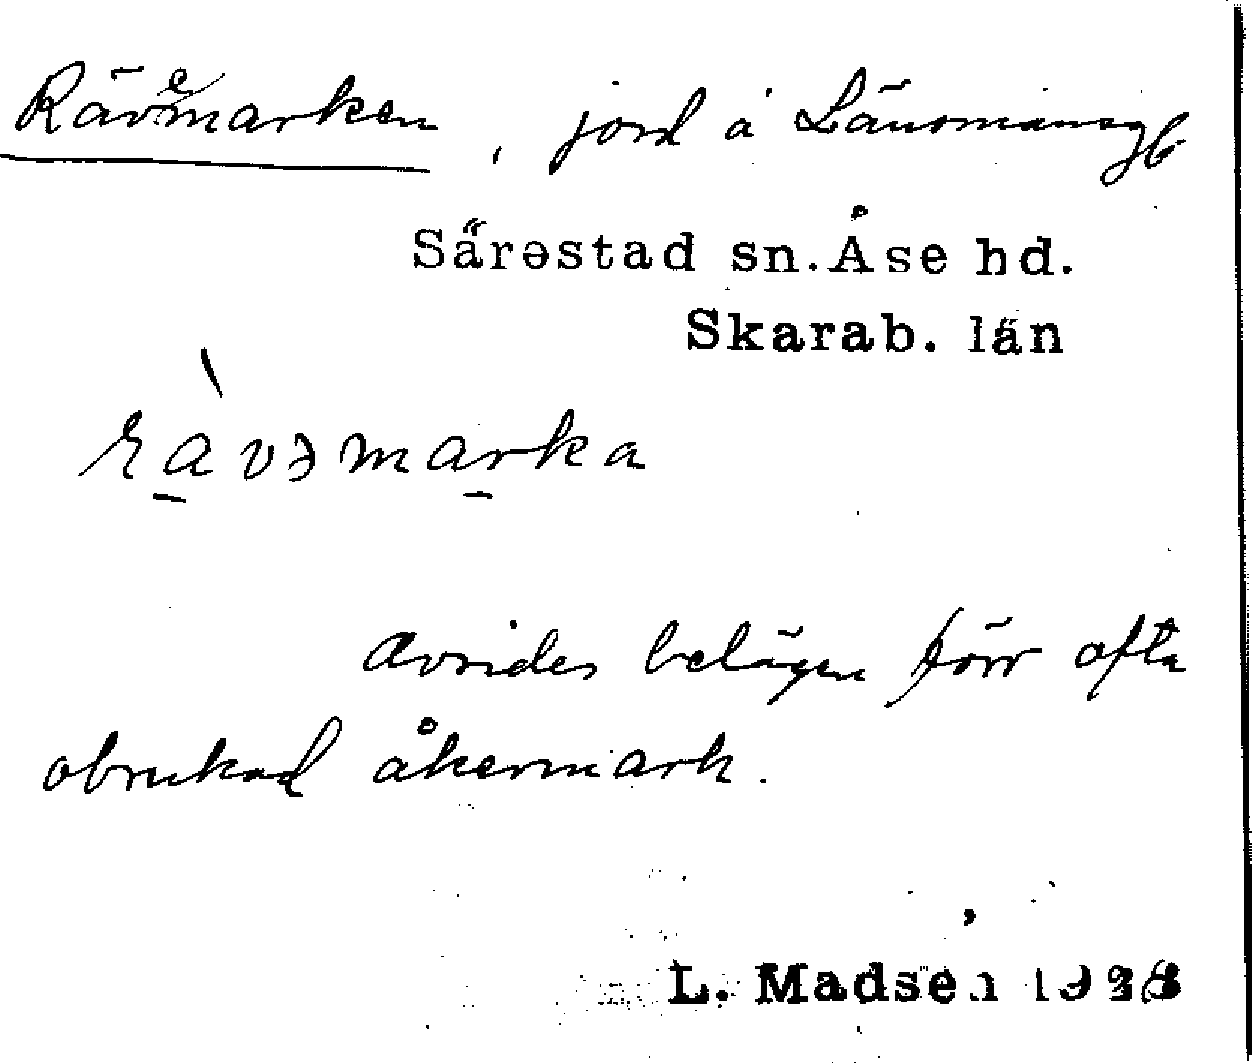 Rävemarken, jord å Länsmansgb
Särestad sn. Åse hd.
Skarab. län
rävəmarka
Avsides belägen förr ofta
obrukad åkermark.
L. Madsen